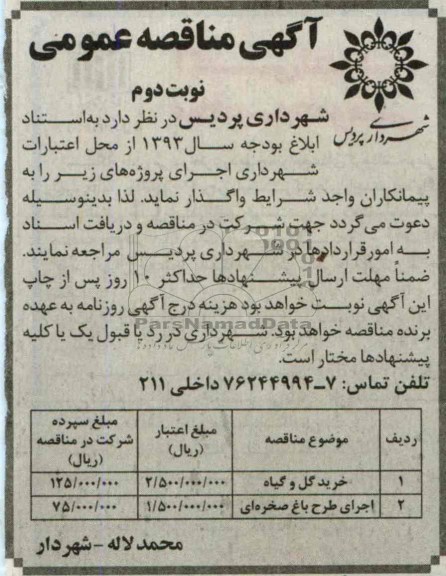 آگهی مناقصه عمومی
نوبت دوم
شهرداری پردیس
شهرداری پردیس در نظر دارد به‌استناد
ابلاغ بودجه سال ۱۳۹۳ از محل اعتبارات
شهرداری اجرای پروژه‌های زیر را به
پیمانکاران واجد شرایط واگذار نماید. لذا بدینوسیله
دعوت می‌گردد جهت شرکت در مناقصه و دریافت اسناد
به امور قراردادها در شهرداری پردیس مراجعه نمایند.
ضمناً مهلت ارسال پیشنهادها حداکثر ۱۰ روز پس از چاپ
این آگهی نوبت خواهد بود هزینه درج آگهی روزنامه به عهده
ParsNamadData
برنده مناقصه خواهد بود. شهرداری در رد یا قبول یک یا کلیه
پیشنهادها مختار است.
تلفن تماس: ۷-۷۶۲۴۴۹۹۴ داخلی ۲۱۱
ردیف موضوع مناقصه مبلغ اعتبار (ریال) مبلغ سپرده شرکت در مناقصه (ریال)
۱ خرید گل و گیاه ۲/۵۰۰/۰۰۰/۰۰۰ ۱۲۵/۰۰۰/۰۰۰
۲ اجرای طرح باغ صخره‌ای ۱/۵۰۰/۰۰۰/۰۰۰ ۷۵/۰۰۰/۰۰۰
محمد لاله - شهردار